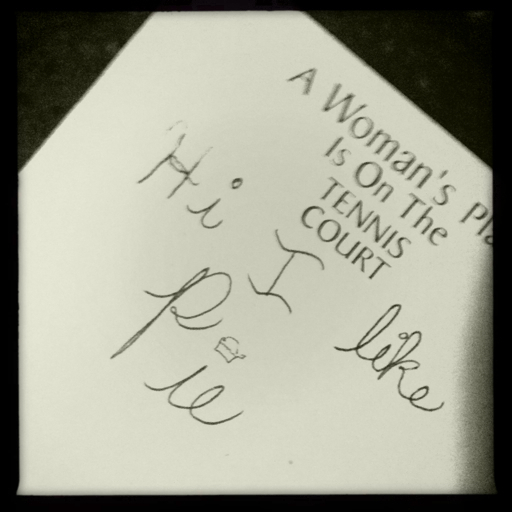 A Woman's Pla
Is On The
TENNIS
COURT
Hi
I like
Pie